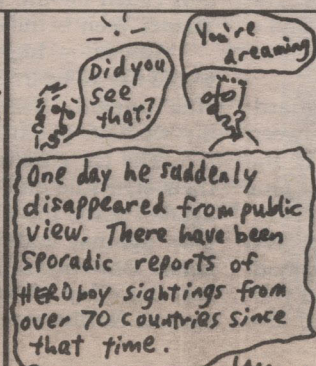 Did you
see
that?
You're
dreaming
One day he suddenly
disappeared from public
view. There have been
sporadic reports of
HEROboy sightings from
over 70 countries since
that time.